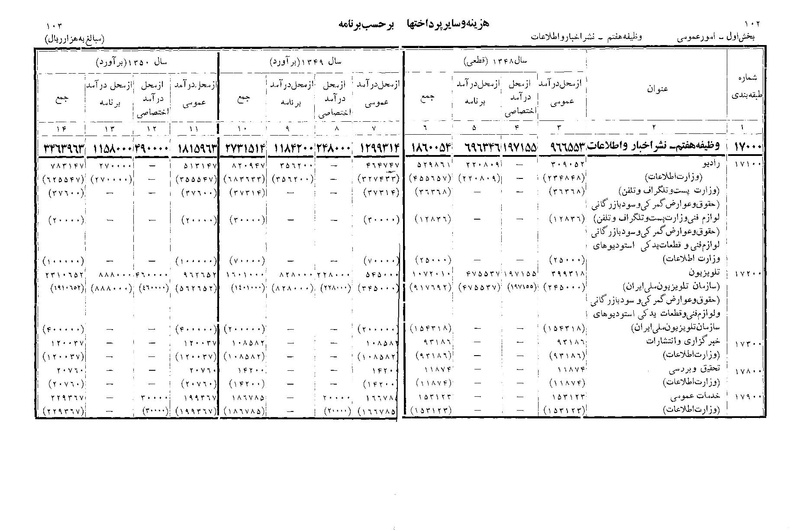 ۱۰۲ هزینه و سایر پرداختها بر حسب برنامه ۱۰۳
بخش اول - امور عمومی وظیفه هفتم - نشر اخبار و اطلاعات (مبالغ به هزار ریال)
شماره طبقه‌بندی عنوان سال ۱۳۴۸ (قطعی) سال ۱۳۴۹ (برآورد) سال ۱۳۵۰ (برآورد)
از محل درآمد عمومی از محل درآمد اختصاصی از محل درآمد برنامه جمع از محل درآمد عمومی از محل درآمد اختصاصی از محل درآمد برنامه جمع از محل درآمد عمومی از محل درآمد اختصاصی از محل درآمد برنامه جمع
۱ ۲ ۳ ۴ ۵ ۶ ۷ ۸ ۹ ۱۰ ۱۱ ۱۲ ۱۳ ۱۴
۱۷۰۰۰ وظیفه هفتم - نشر اخبار و اطلاعات ۹۶۶۵۵۳ ۱۹۷۱۵۵ ۶۹۶۳۴۶ ۱۸۶۰۰۵۴ ۱۲۹۹۳۱۴ ۲۴۸۰۰۰ ۱۱۸۴۲۰۰ ۲۷۳۱۵۱۴ ۱۸۱۵۹۶۳ ۴۹۰۰۰۰ ۱۱۵۸۰۰۰ ۳۴۶۳۹۶۳
۱۷۱۰۰ رادیو ۳۰۹۰۵۲ — ۲۲۰۸۰۹ ۵۲۹۸۶۱ ۴۶۴۷۴۷ — ۳۵۶۲۰۰ ۸۲۰۹۴۷ ۵۱۳۱۴۷ — ۲۷۰۰۰۰ ۷۸۳۱۴۷
(وزارت اطلاعات) (۲۳۴۸۴۸) — (۲۲۰۸۰۹) (۴۵۵۶۵۷) (۳۲۷۴۳۳) — (۳۵۶۲۰۰) (۶۸۳۶۳۳) (۳۵۵۵۴۷) — (۲۷۰۰۰۰) (۶۲۵۵۴۷)
(وزارت پست و تلگراف و تلفن) (۳۶۳۶۸) — — (۳۶۳۶۸) (۳۷۳۱۴) — — (۳۷۳۱۴) (۳۷۶۰۰) — — (۳۷۶۰۰)
(حقوق و عوارض گمرکی و سود بازرگانی
لوازم فنی وزارت پست و تلگراف و تلفن) (۱۲۸۳۶) — — (۱۲۸۳۶) (۳۰۰۰۰) — — (۳۰۰۰۰) (۲۰۰۰۰) — — (۲۰۰۰۰)
(حقوق و عوارض گمرکی و سود بازرگانی
لوازم فنی و قطعات یدکی استودیوهای
وزارت اطلاعات) (۲۵۰۰۰) — — (۲۵۰۰۰) (۷۰۰۰۰) — — (۷۰۰۰۰) (۱۰۰۰۰۰) — — (۱۰۰۰۰۰)
۱۷۲۰۰ تلویزیون ۳۹۹۳۱۸ ۱۹۷۱۵۵ ۴۷۵۵۳۷ ۱۰۷۲۰۱۰ ۵۴۵۰۰۰ ۲۲۸۰۰۰ ۸۲۸۰۰۰ ۱۶۰۱۰۰۰ ۹۶۲۶۵۲ ۴۶۰۰۰۰ ۸۸۸۰۰۰ ۲۳۱۰۶۵۲
(سازمان تلویزیون ملی ایران) (۲۴۵۰۰۰) (۱۹۷۱۵۵) (۴۷۵۵۳۷) (۹۱۷۶۹۲) (۳۴۵۰۰۰) (۲۲۸۰۰۰) (۸۲۸۰۰۰) (۱۴۰۱۰۰۰) (۵۶۲۶۵۲) (۴۶۰۰۰۰) (۸۸۸۰۰۰) (۱۹۱۰۶۵۲)
(حقوق و عوارض گمرکی و سود بازرگانی
و لوازم فنی و قطعات یدکی استودیوهای
سازمان تلویزیون ملی ایران) (۱۵۴۳۱۸) — — (۱۵۴۳۱۸) (۲۰۰۰۰۰) — — (۲۰۰۰۰۰) (۴۰۰۰۰۰) — — (۴۰۰۰۰۰)
۱۷۳۰۰ خبرگزاری و انتشارات ۹۳۱۸۶ — — ۹۳۱۸۶ ۱۰۸۵۸۲ — — ۱۰۸۵۸۲ ۱۲۰۰۳۷ — — ۱۲۰۰۳۷
(وزارت اطلاعات) (۹۳۱۸۶) — — (۹۳۱۸۶) (۱۰۸۵۸۲) — — (۱۰۸۵۸۲) (۱۲۰۰۳۷) — — (۱۲۰۰۳۷)
۱۷۸۰۰ تحقیق و بررسی ۱۱۸۷۴ — — ۱۱۸۷۴ ۱۴۲۰۰ — — ۱۴۲۰۰ ۲۰۷۶۰ — — ۲۰۷۶۰
(وزارت اطلاعات) (۱۱۸۷۴) — — (۱۱۸۷۴) (۱۴۲۰۰) — — (۱۴۲۰۰) (۲۰۷۶۰) — — (۲۰۷۶۰)
۱۷۹۰۰ خدمات عمومی ۱۵۳۱۲۳ — — ۱۵۳۱۲۳ ۱۶۶۷۸۵ ۲۰۰۰۰ — ۱۸۶۷۸۵ ۱۹۹۳۶۷ ۳۰۰۰۰ — ۲۲۹۳۶۷
(وزارت اطلاعات) (۱۵۳۱۲۳) — — (۱۵۳۱۲۳) (۱۶۶۷۸۵) (۲۰۰۰۰) — (۱۸۶۷۸۵) (۱۹۹۳۶۷) (۳۰۰۰۰) — (۲۲۹۳۶۷)